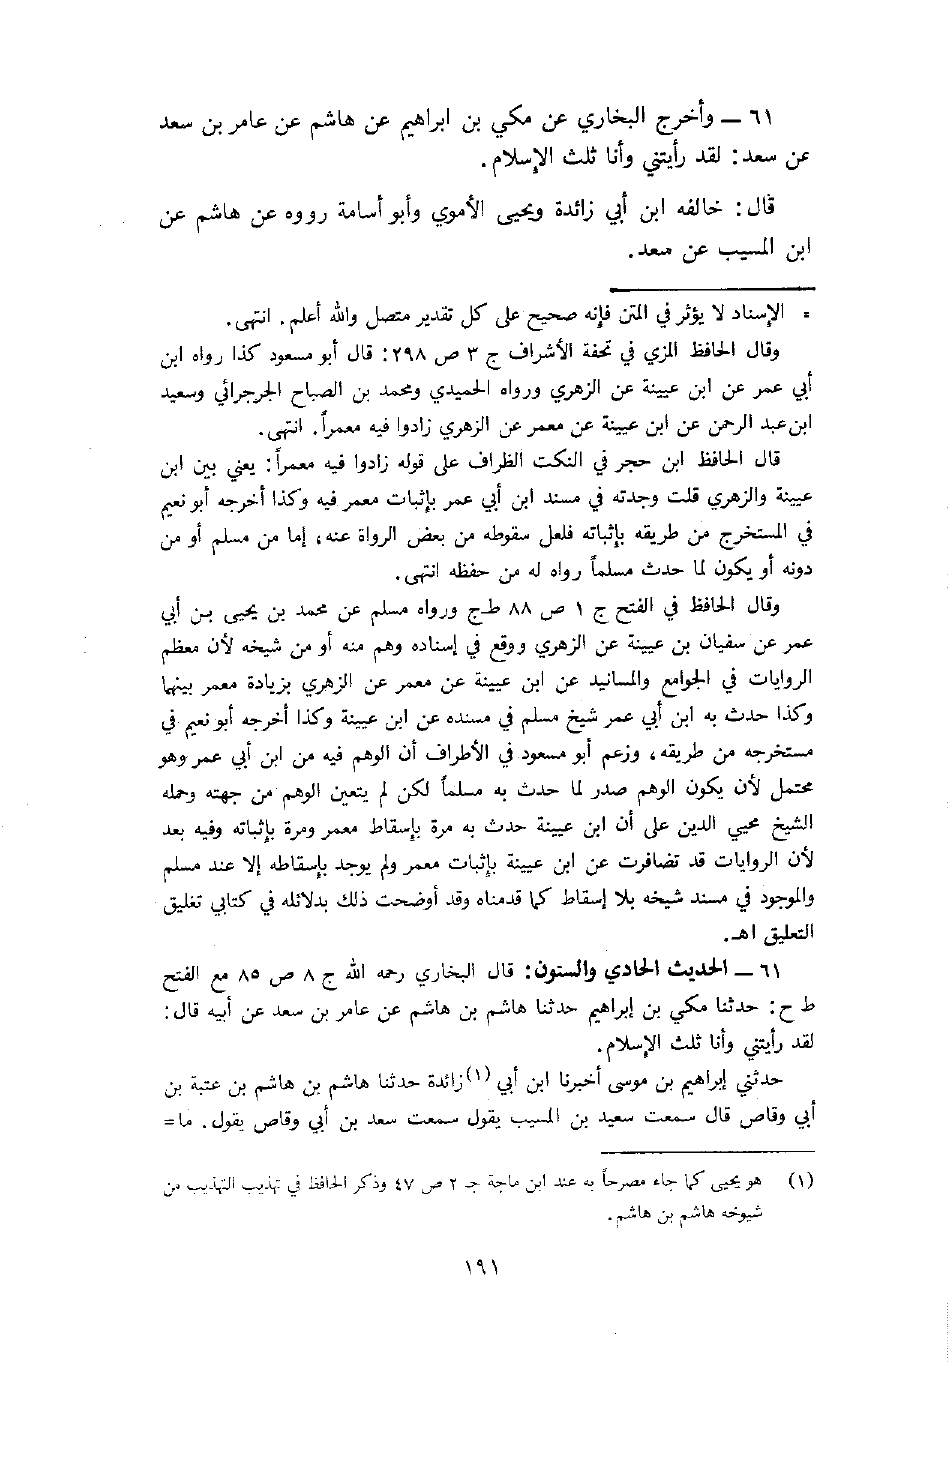 ٦١ — وأخرج البخاري عن مكي بن ابراهيم عن هاشم عن عامر بن سعد
عن سعد: لقد رأيتني وأنا ثلث الإسلام.
قال: خالفه ابن أبي زائدة ويحيى الأموي وأبو أسامة رووه عن هاشم عن
ابن المسيب عن سعد.
= الإسناد لا يؤثر في المتن فإنه صحيح على كل تقدير متصل والله أعلم. انتهى.
وقال الحافظ المزي في تحفة الأشراف ج ٣ ص ٢٩٨: قال أبو مسعود كذا رواه ابن
أبي عمر عن ابن عيينة عن الزهري ورواه الحميدي ومحمد بن الصباح الجرجرائي وسعيد
ابن عبد الرحمن عن ابن عيينة عن معمر عن الزهري زادوا فيه معمراً. انتهى.
قال الحافظ ابن حجر في النكت الظراف على قوله زادوا فيه معمراً: يعني بين ابن
عيينة والزهري قلت وجدته في مسند ابن أبي عمر بإثبات معمر فيه وكذا أخرجه أبو نعيم
في المستخرج من طريقه بإثباته فلعل سقوطه من بعض الرواة عنه، إما من مسلم أو من
دونه أو يكون لما حدث مسلماً رواه له من حفظه انتهى.
وقال الحافظ في الفتح ج ١ ص ٨٨ ط ح ورواه مسلم عن محمد بن يحيى بن أبي
عمر عن سفيان بن عيينة عن الزهري ووقع في إسناده وهم منه أو من شيخه لأن معظم
الروايات في الجوامع والمسانيد عن ابن عيينة عن معمر عن الزهري بزيادة معمر بينهما
وكذا حدث به ابن أبي عمر شيخ مسلم في مسنده عن ابن عيينة وكذا أخرجه أبو نعيم في
مستخرجه من طريقه، وزعم أبو مسعود في الأطراف أن الوهم فيه من ابن أبي عمر وهو
محتمل لأن يكون الوهم صدر لما حدث به مسلماً لكن لم يتعين الوهم من جهته وحمله
الشيخ محيي الدين على أن ابن عيينة حدث به مرة بإسقاط معمر ومرة بإثباته وفيه بعد
لأن الروايات قد تضافرت عن ابن عيينة بإثبات معمر ولم يوجد بإسقاطه إلا عند مسلم
والموجود في مسند شيخه بلا إسقاط كما قدمناه وقد أوضحت ذلك بدلائله في كتابي تغليق
التعليق اهـ.
٦١ — الحديث الحادي والستون: قال البخاري رحمه الله ج ٨ ص ٨٥ مع الفتح
ط ح: حدثنا مكي بن إبراهيم حدثنا هاشم بن هاشم عن عامر بن سعد عن أبيه قال:
لقد رأيتني وأنا ثلث الإسلام.
حدثني إبراهيم بن موسى أخبرنا ابن أبي (١) زائدة حدثنا هاشم بن هاشم بن عتبة بن
أبي وقاص قال سمعت سعيد بن المسيب يقول سمعت سعد بن أبي وقاص يقول. ما =
(١) هو يحيى كما جاء مصرحاً به عند ابن ماجة جـ ٢ ص ٤٧ وذكر الحافظ في تهذيب التهذيب من
شيوخه هاشم بن هاشم.
١٩١